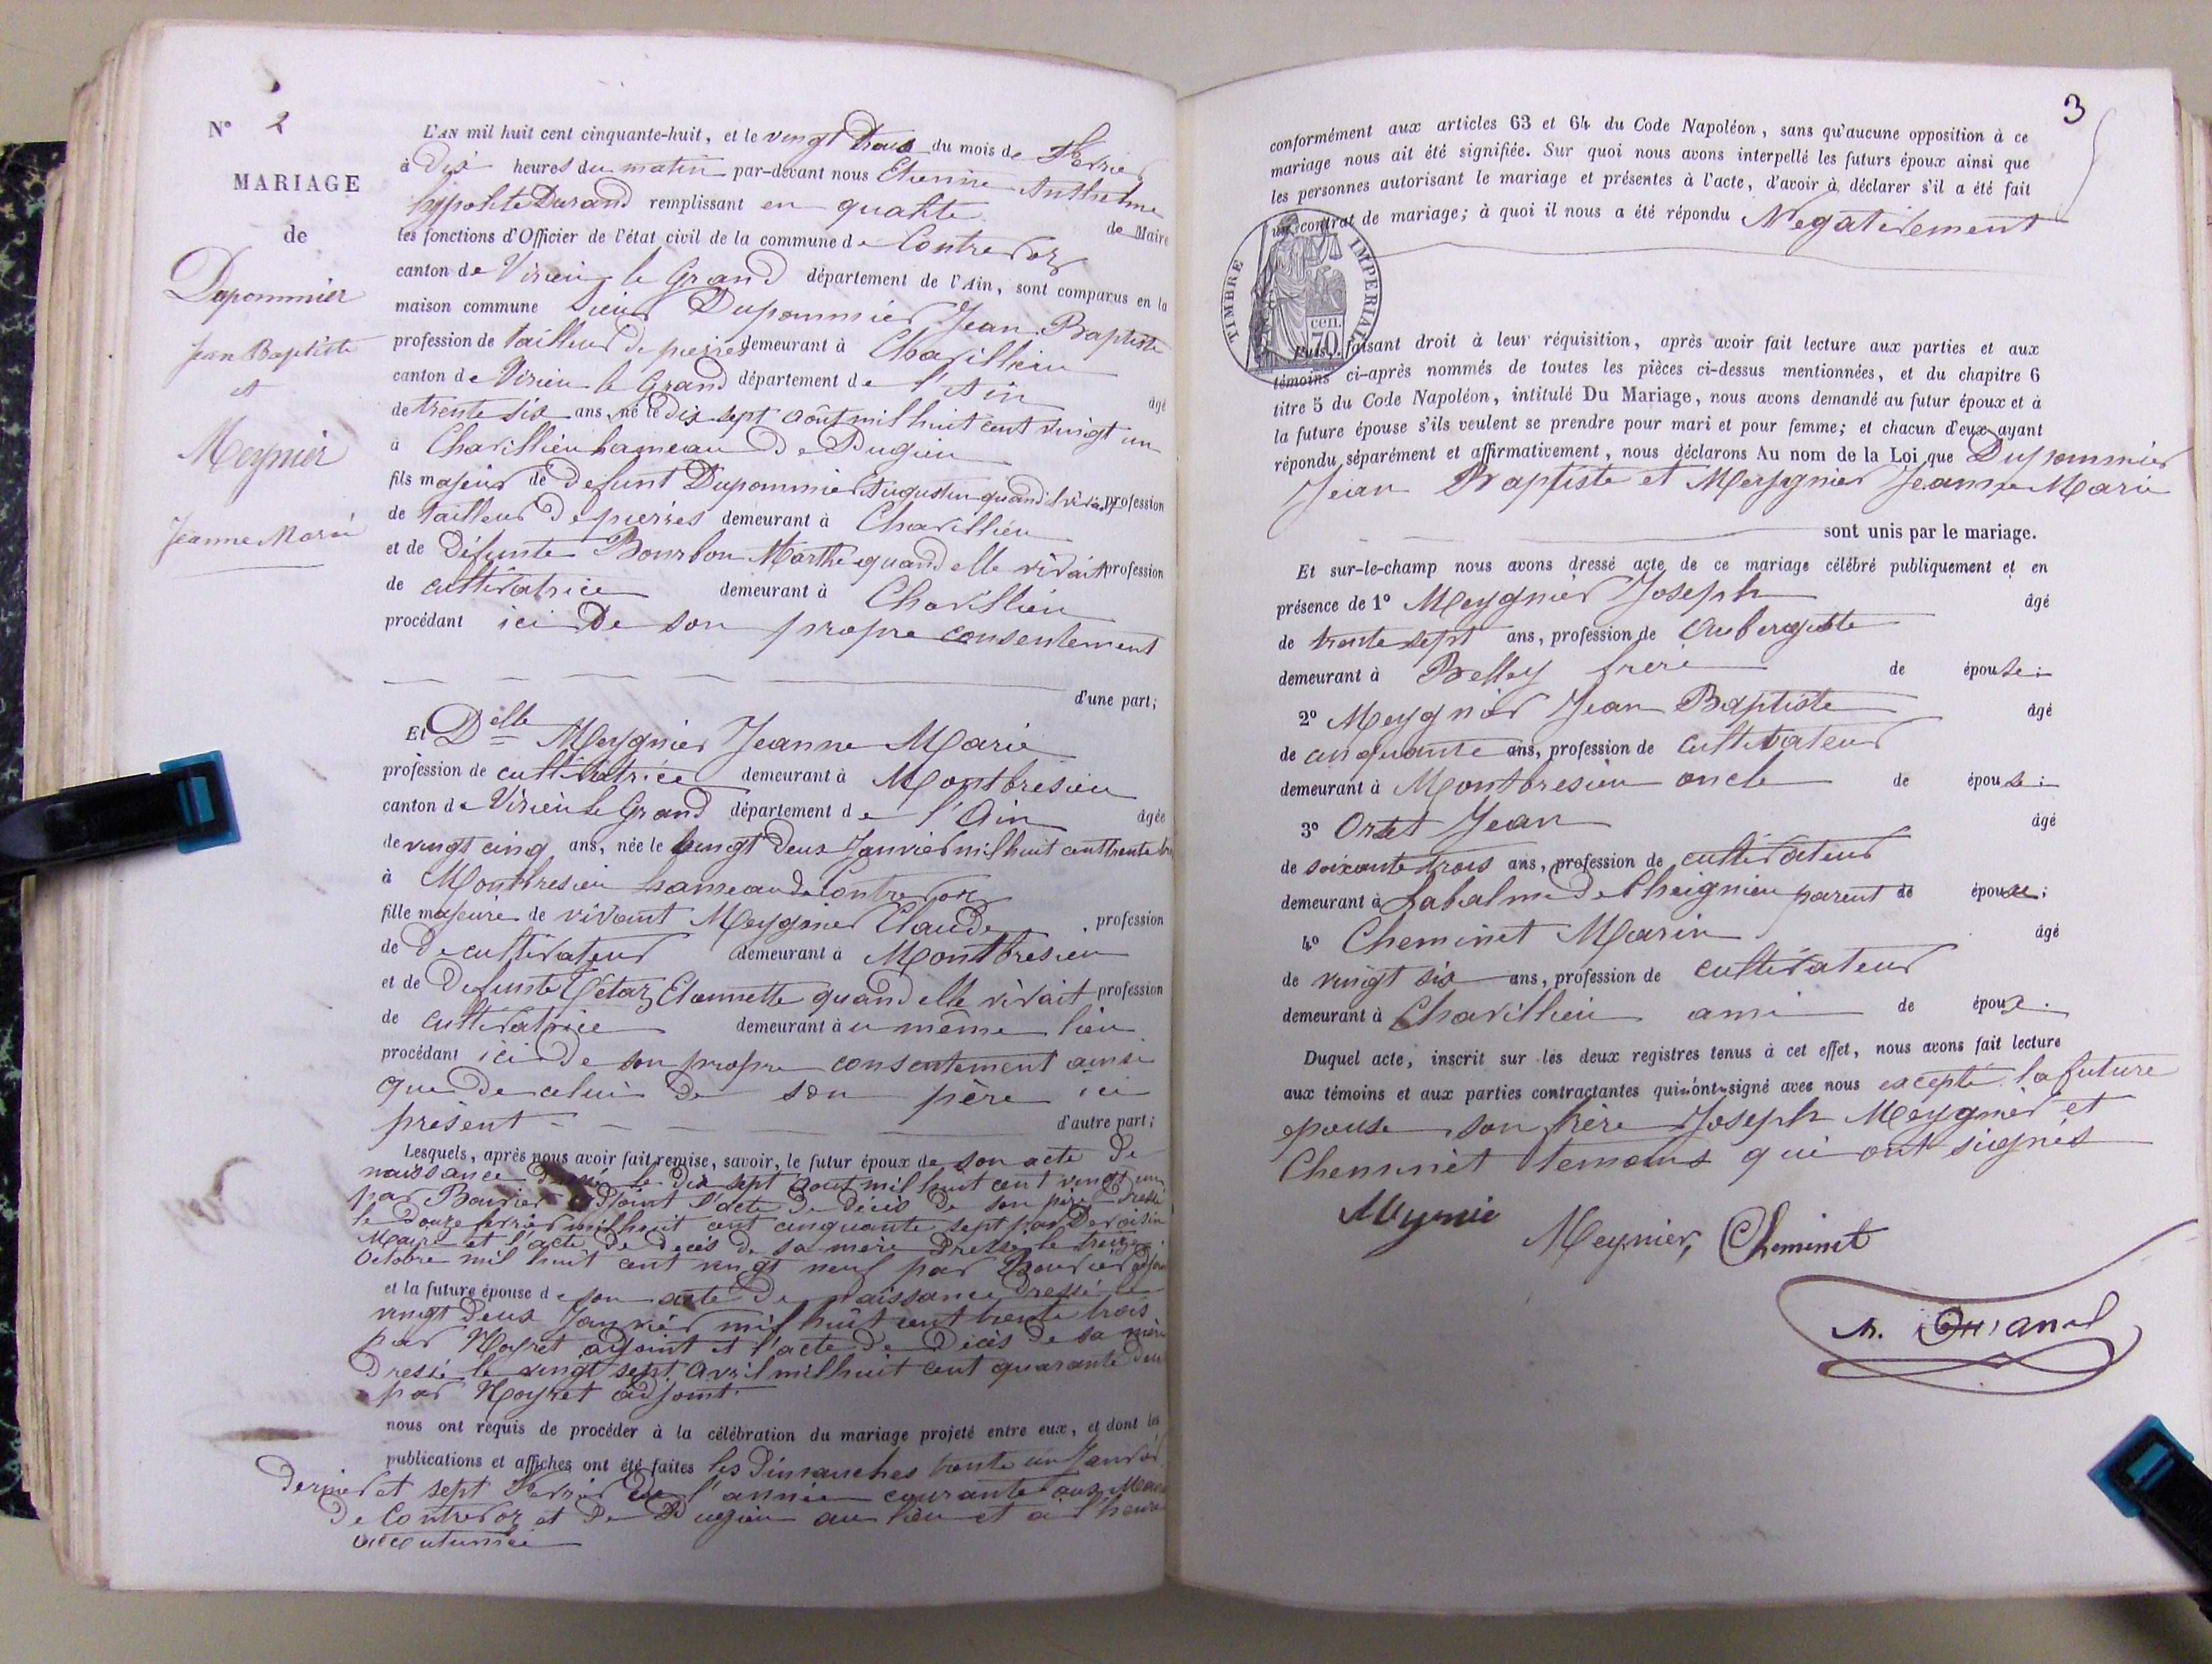 N° 2
MARIAGE
de
Dupommier
Jean Baptiste
et
Meynier
Jeanne Marie
L'AN mil huit cent cinquante-huit, et le vingt trois du mois de Février
à Dix heures du matin par-devant nous Etienne Anthelme
hypolite Durand remplissant en qualité de Maire
les fonctions d'Officier de l'état civil de la commune de Contrevoz
canton de Virieu le Grand département de l'Ain, sont comparus en la
maison commune Sieur Dupommier Jean Baptiste
profession de tailleur de pierres demeurant à Chavillieu
canton de Virieu le Grand département de l'Ain âgé
de trente six ans, né le dix sept août mil huit cent vingt un
à Chavillieu hameau de Pugieu
fils majeur de defunt Dupommier Augustin quand il vivait profession
de tailleur de pierres demeurant à Chavillieu
et de Défunte Bourbon Marthe quand elle vivait profession
de cultivatrice demeurant à Chavillieu
procédant ici De son propre consentement
d'une part;
Et Delle Meygnier Jeanne Marie
profession de cultivatrice demeurant à Montbresieu
canton de Virieu le Grand département de l'Ain âgée
de vingt cinq ans, née le vingt Deux Janvier mil huit cent trente trois
à Montbresieu hameau de Contrevoz
fille majeure de vivant Meygnier Claude profession
de De cultivateur demeurant à Montbresieu
et de Defunte Etannette quand elle vivait profession
de cultivatrice demeurant à u même lieu
procédant ici de son propre consentement ainsi
que de celui de son père ici
présent d'autre part;
Lesquels, après nous avoir fait remise, savoir, le futur époux de son acte De
naissance le dix sept août mil huit cent vingt un
par Bouvier adjoint l'acte de décès de son père Dressé
le douze février mil huit cent cinquante sept par Devoisin
Maire et l'acte de decès de sa mère Dressé le treize
Octobre mil huit cent vingt neuf par Bouvier adjoint
et la future épouse de son acte De naissance dressé le
vingt Deux Janvier mil huit cent trente trois
par Noyret adjoint et l'acte de Décès de sa mère
Dressé le vingt sept avril mil huit cent quarante deux
par Noyret adjoint
nous ont requis de procéder à la célébration du mariage projeté entre eux, et dont les
publications et affiches ont été faites les Dimanches trente un Janvier
dernier et sept Février de l'année courante aux
de Contrevoz et de Pugieu au lieu et à l'heure
accoutumée
3
conformément aux articles 63 et 64 du Code Napoléon, sans qu'aucune opposition à ce
mariage nous ait été signifiée. Sur quoi nous avons interpellé les futurs époux ainsi que
les personnes autorisant le mariage et présentes à l'acte, d'avoir à déclarer s'il a été fait
un contrat de mariage; à quoi il nous a été répondu Negativement
TIMBRE IMPERIAL
70 cen.
Puis, faisant droit à leur réquisition, après avoir fait lecture aux parties et aux
témoins ci-après nommés de toutes les pièces ci-dessus mentionnées, et du chapitre 6
titre 5 du Code Napoléon, intitulé Du Mariage, nous avons demandé au futur époux et à
la future épouse s'ils veulent se prendre pour mari et pour femme; et chacun d'eux ayant
répondu séparément et affirmativement, nous déclarons Au nom de la Loi que Dupommier
Jean Baptiste et Meygnier Jeanne Marie
sont unis par le mariage.
Et sur-le-champ nous avons dressé acte de ce mariage célébré publiquement et en
présence de 1° Meygnier Joseph âgé
de trente sept ans, profession de Aubergiste
demeurant à Belley frere de épouse;
2° Meygnier Jean Baptiste âgé
de cinquante ans, profession de cultivateur
demeurant à Montbresieu oncle de épouse;
3° Jean âgé
de soixante trois ans, profession de cultivateur
demeurant à Labalme de Cheignieu parent de épouse;
4° Cheminet Marin âgé
de vingt six ans, profession de cultivateur
demeurant à Chavillieu ami de époux.
Duquel acte, inscrit sur les deux registres tenus à cet effet, nous avons fait lecture
aux témoins et aux parties contractantes qui n'ont signé avec nous excepté la future
epouse son frère Joseph Meygnier et
Cheminet temoins qui ont signés
Meynié
Meynier,
Cheminet
h. Durand